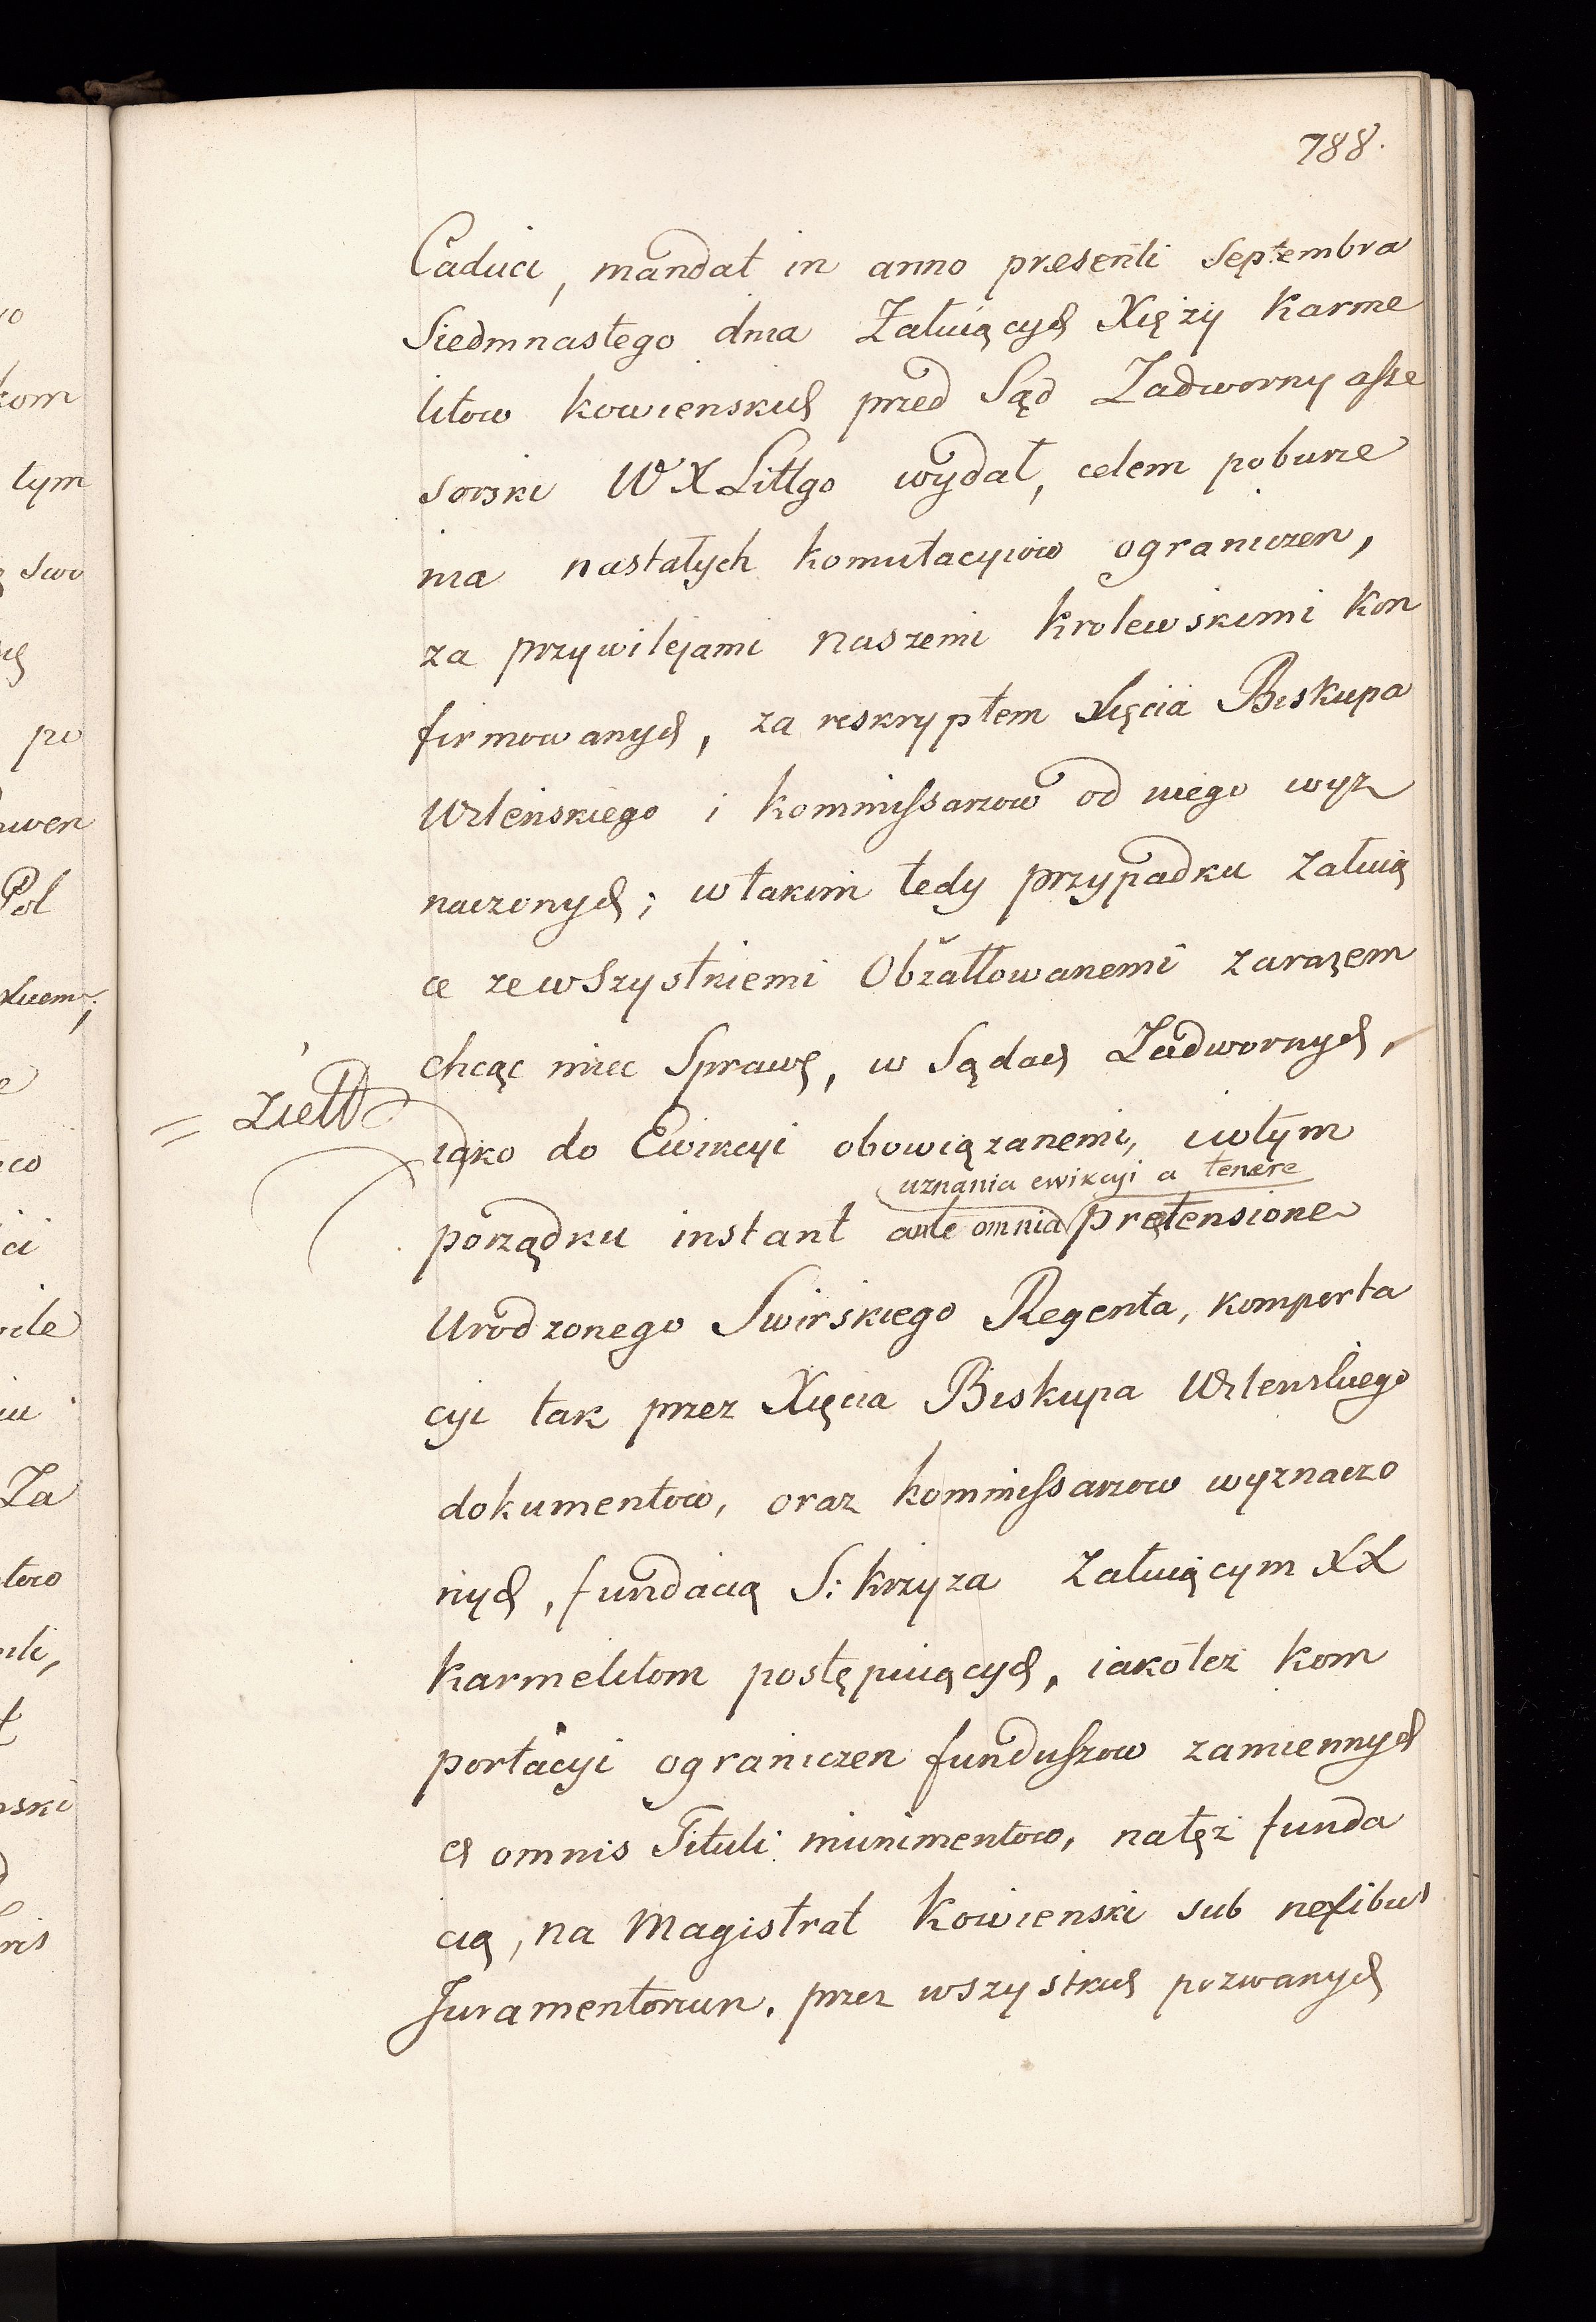 788.
Caduci, mandat in anno presenti Septembra
Siedmnastego dnia Załuiących Xięży Karme
litow kowienskich przed Sąd Zadworny asse
sorski W X Littgo wydał, celem poburze
nia nastałych komutacyiow ograniczen,
za przywilejami naszemi krolewskiemi kon
firmowanych, za reskryptem Xięcia Biskupa
Wilenskiego i kommissarzow od niego wyz
naczonych; w takim tedy przypadku Załuią
ce ze wszystkiemi Obżałłowanemi zarazem
chcąc miec Sprawę, w Sądach Zadwornych,
iako do Ewikcyi obowiązanemi, i w tym
uznania ewikcyi a tenere
porządku instant ante omnia prętensione
Urodzonego Swirskiego Regenta, komporta
cyi tak przez Xięcia Biskupa Wilenskiego
dokumentow, oraz kommissarzow wyznaczo
nych, fundacią S: krzyza Załuiącym XX
karmelitom postępuiących, iakoteż kom
portacyi ograniczen funduszow zamiennych
et omnis Tituli munimentow, natęż funda
cią, na Magistrat Kowienski sub nexibus
Juramentorum, przez wszystkich pozwanych